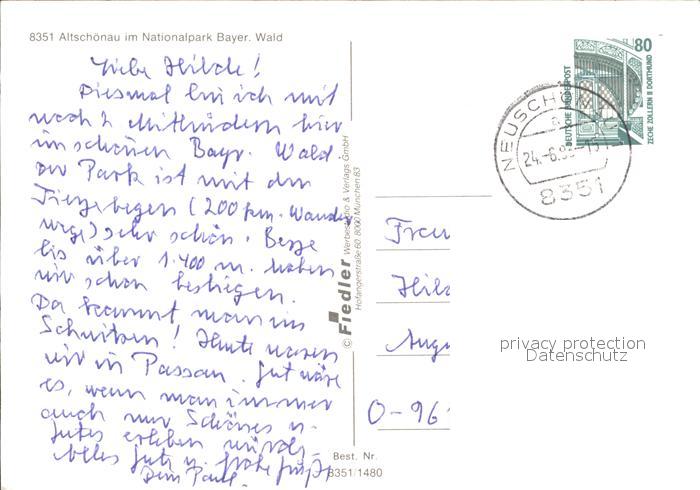 8351 Altschönau im Nationalpark Bayer. Wald
Liebe Hilde!
Diesmal bin ich mit
noch 2 Mitbrüdern hier
im schönen Bayr. Wald.
Der Park ist mit den
Tiergehegen (200 km. Wander
wege) sehr schön. Berge
bis über 1.400 m. haben
wir schon bestiegen.
Da kommt man ins
Schwitzen! Heute waren
wir in Passau. Gut wäre
es, wenn man immer
auch nur Schönes u.
Gutes erleben würde.
Alles Gute u.
Dein Paul.
© Fiedler Werbestudio & Verlags GmbH
Hofangerstraße 60 · 8000 München 83
Best. Nr.
8351/1480
DEUTSCHE BUNDESPOST
80
ZECHE ZOLLERN II DORTMUND
24.-6.
8351
Frau
O-96
privacy protection
Datenschutz